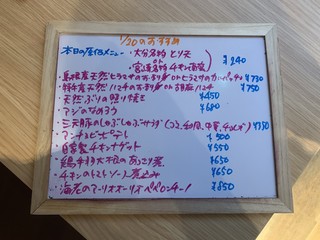 1/20のおすすめ
本日の屋台メニュー ・大分名物 とり天
or
・宮崎名物 チキン南蛮 ¥240
・島根産天然ヒラマサのお刺身 or ヒラマサのカルパッチョ ¥730
・特産天然ハマチのお刺身 or 胡麻ハマチ ¥750
・天然ぶりの照り焼き ¥450
・アジのなめろう ¥680
・三元豚のしゃぶしゃぶサラダ ¥750
・アンチョビポテト ¥500
・自家製チキンナゲット ¥550
・鶏手羽大根のあっさり煮 ¥650
・チキンのトマトソース煮込み ¥650
・海老のアーリオオーリオペペロンチーノ ¥850